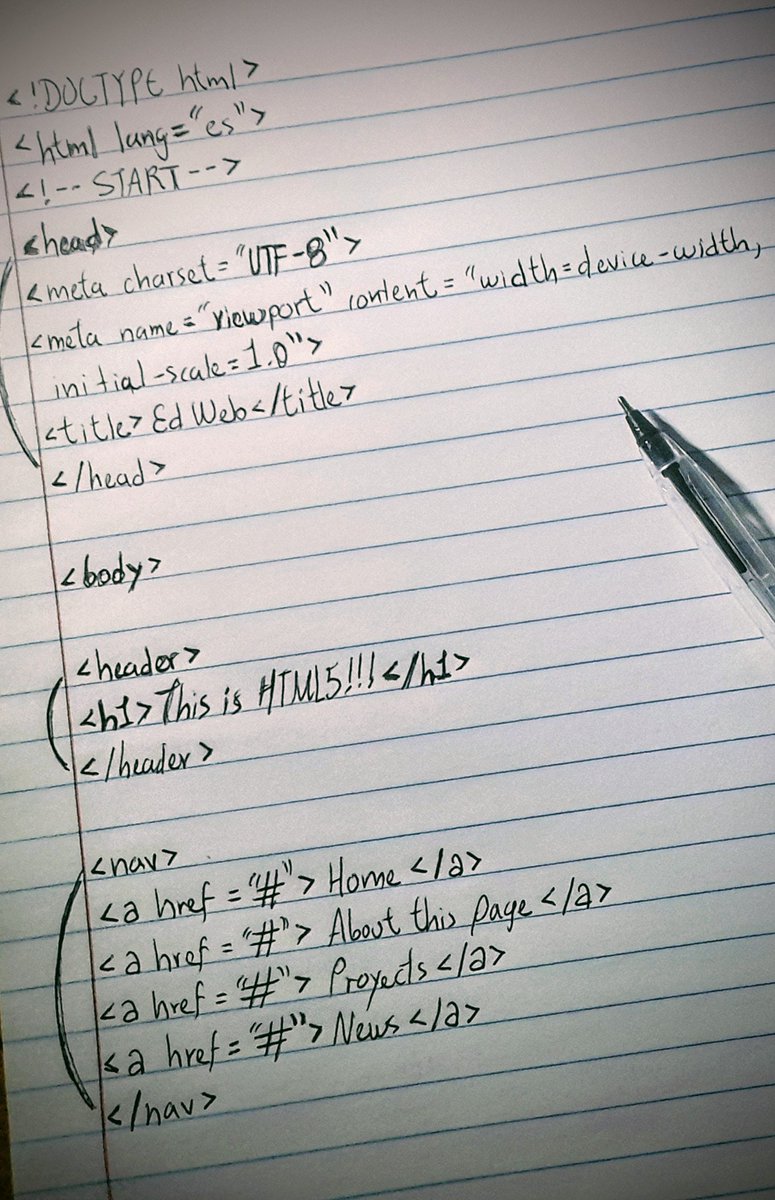 <!DOCTYPE html>
<html lang="es">
<!-- START -->
<head>
<meta charset="UTF-8">
<meta name="viewport" content="width=device-width,
initial-scale=1.0">
<title>Ed Web</title>
</head>
<body>
<header>
<h1>This is HTML5!!!</h1>
</header>
<nav>
<a href="#">Home</a>
<a href="#">About this page</a>
<a href="#">Proyects</a>
<a href="#">News</a>
</nav>